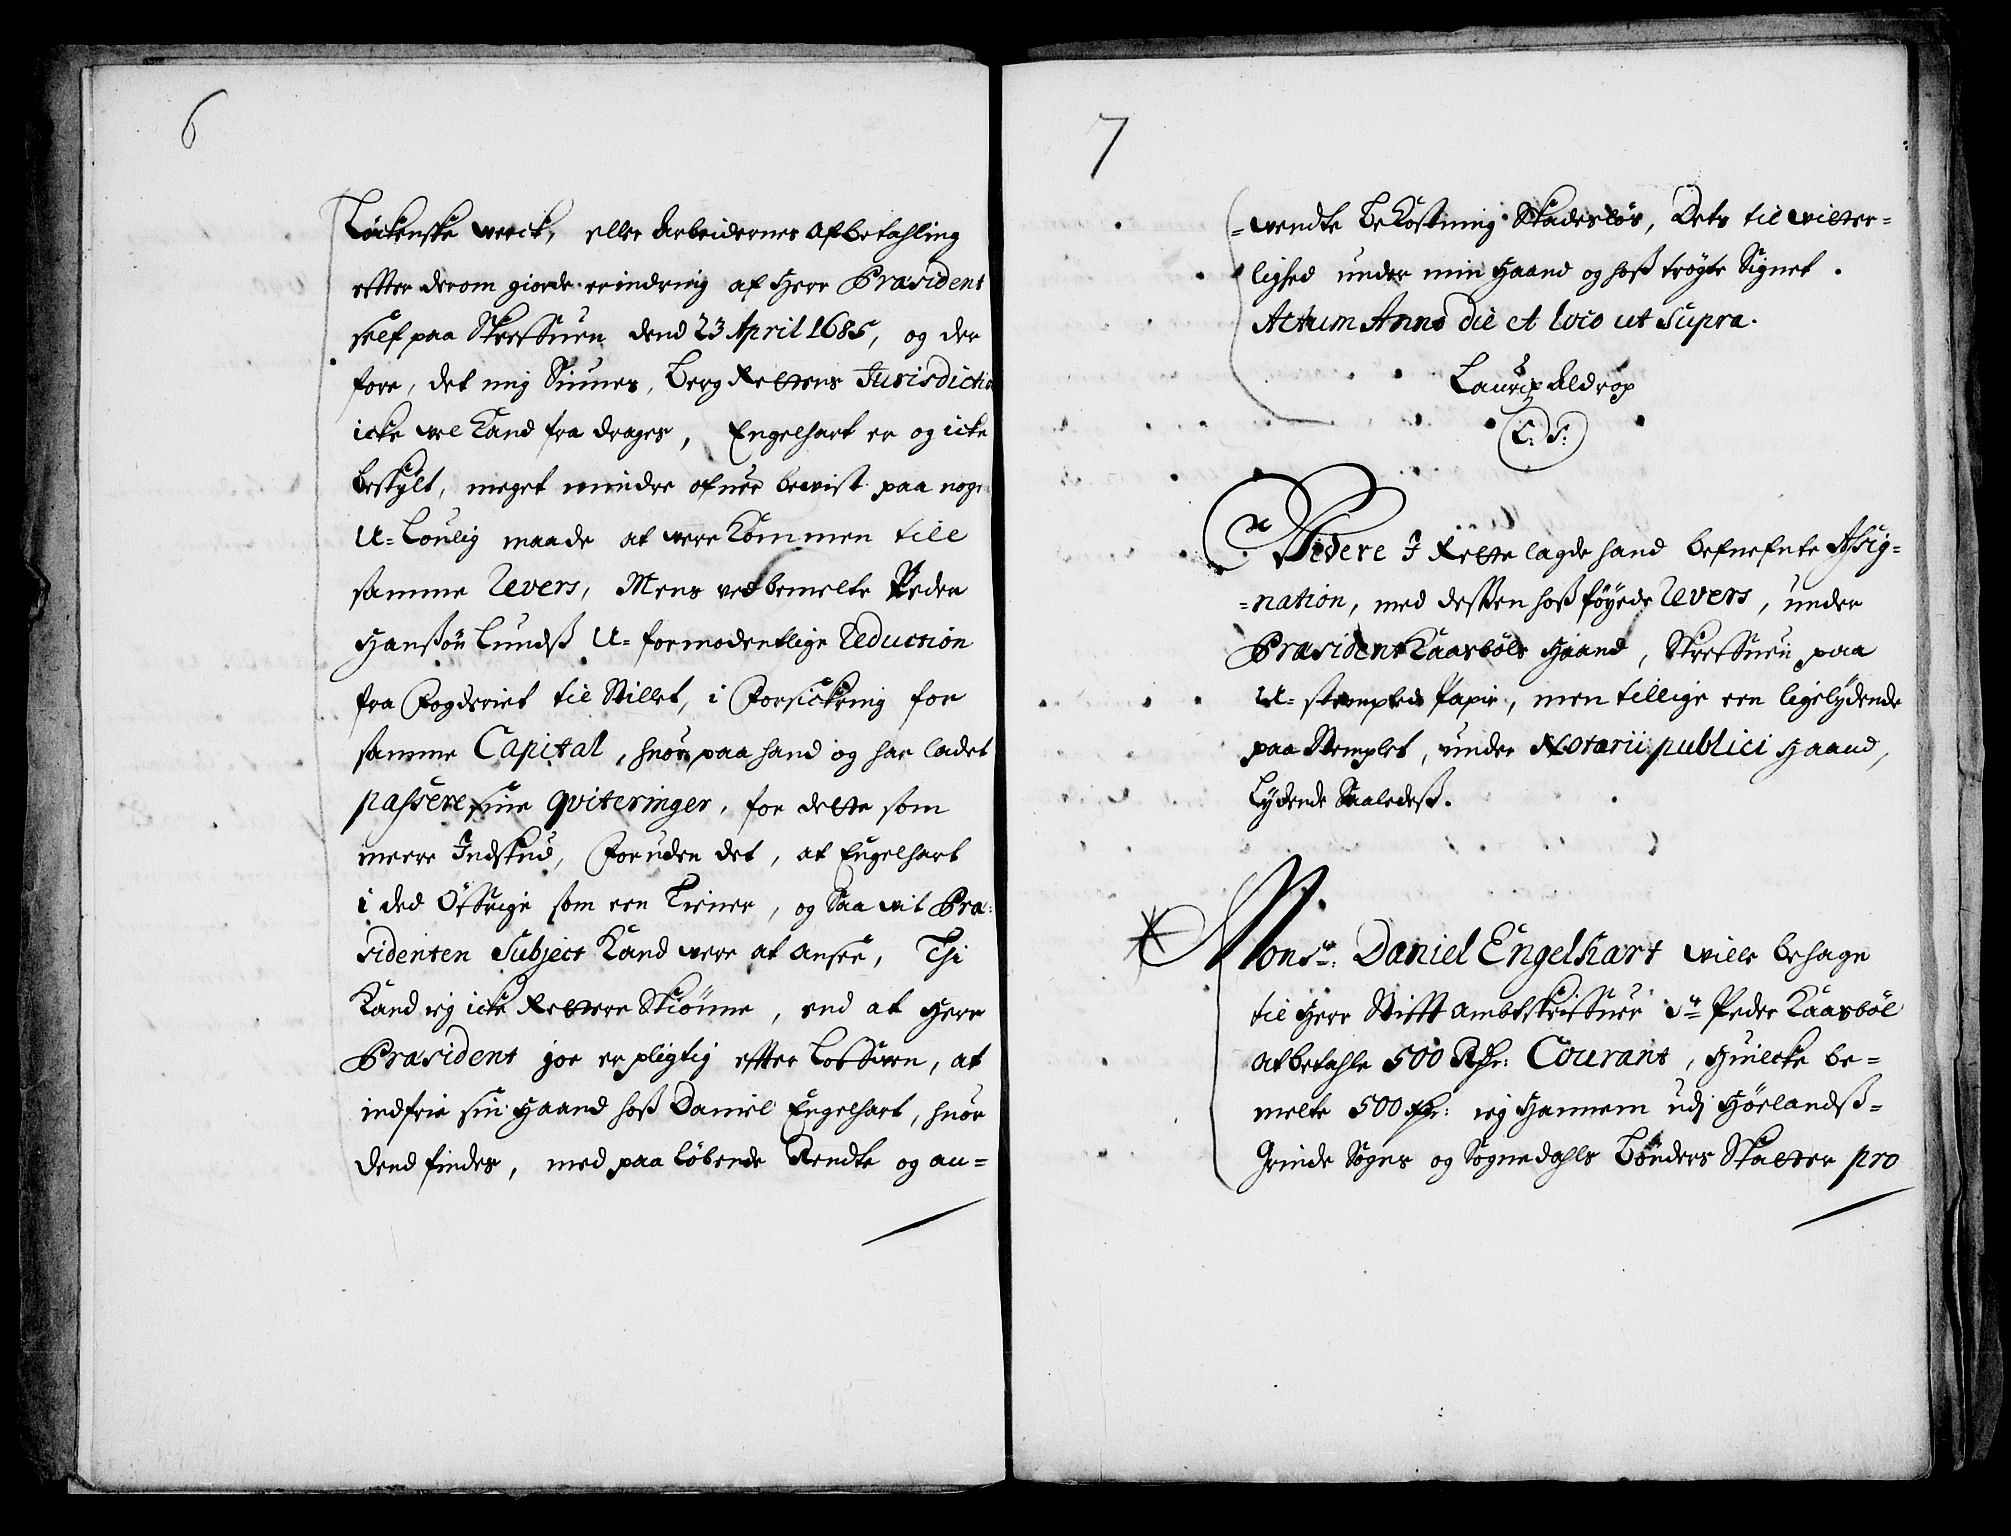 6
Löckenske werck, eller Arbeidernes Afbetahling
effter derom giorde erindring af Herr Præsident
self paa Skreffuen dend 23 April 1685, og der
fore, det mig Siunes, Berg Rettens Jurisdictio
icke vel Kand fra drages, Engelhart er og icke
beskylt, meget mindre ofuer bewist paa nogen
U-Loulig maade at were Kommen till
samme Revers, Mens ved bemelte Peder
Hanßön Lundß U-formodentlige Reduction
fra Fogderiet til Stillet, i Forsickring for
samme Capital, huor paa hand og har ladet
passere sine qviteringer, for dette som
meere Indskud, Foruden det, at Engelhart
i ded Öffrige som een Tiener, og Saa vit Præ-
sidenten Subject Kand were at ansee, Thi
Kand ieg icke Rettere Skiönne, end at Herr
Præsident joe er pligtig effter Loffuen, at
indfrie sin Haand hoß Daniel Engelhart, huor
dend findes, med paa Löbende Rendte og an-
7
-wendte BeKostning Skadeslös, Dets til witter-
lighed under min Haand og hoß trögte Signet.
Actum Anno die et loco ut Supra.
Lauriz Aldrop
L: S:
Videre I Rette lagde hand befnefnte Assig-
-nation, med dessen hoß föyede Revers, under
Præsident Kaarböls Haand, Skreffuen paa
U-stemplet Papir, men tillige een ligelydende
paa Stemplet, under Notarii publici Haand,
Lydende Saaledeß.
Monsr: Daniel Engelhart wille behage
til Herr Stifft Ambtskriffuer Sr Peder Kaarböl
at betahle 500 Rdr: Courant, Huilcke be-
melte 500 Rdr: ieg Hannem udj Höelandß-
Grinde Sogns og Sognedahls Bönders Skatter pro